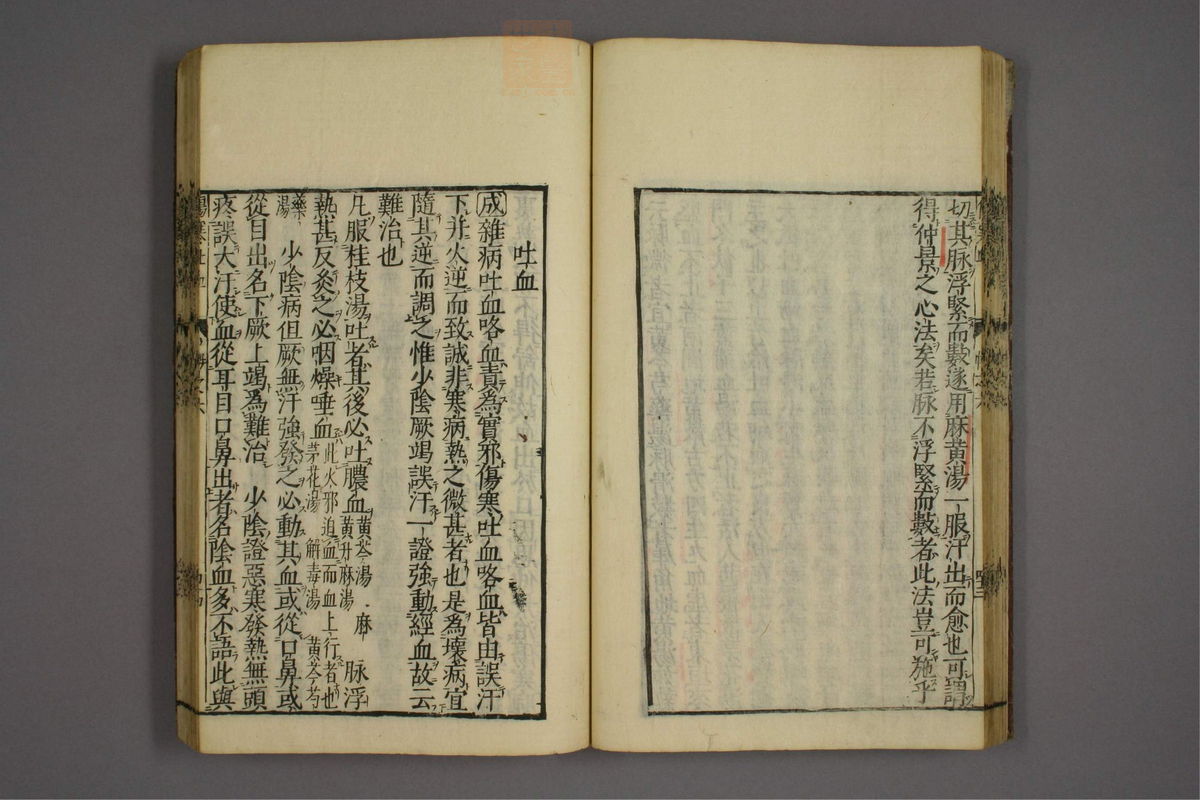 切其脉浮緊而數遂用麻黄湯一服汗出而愈也可謂
得仲景之心法矣若脉不浮緊而數者此法豈可施乎
吐血
成雜病吐血咯血責為實邪傷寒吐血咯血皆由誤汗
下并火逆而致誠非寒病熱之微甚者也是為壞病宜
隨其逆而調之惟少陰厥竭誤汗一證強動經血故云
難治也
凡服桂枝湯吐者其後必吐膿血黄芩湯 麻黄升麻湯 脉浮
熱甚反灸之必咽燥唾血此火邪迫血而血上行者也 茅花湯 解毒湯 黄芩芍
藥湯 少陰病但厥無汗強發之必動其血或從口鼻或
從目出名下厥上竭為難治 少陰證惡寒發熱無頭
疼誤大汗使血從耳目口鼻出者名陰血多不語此與